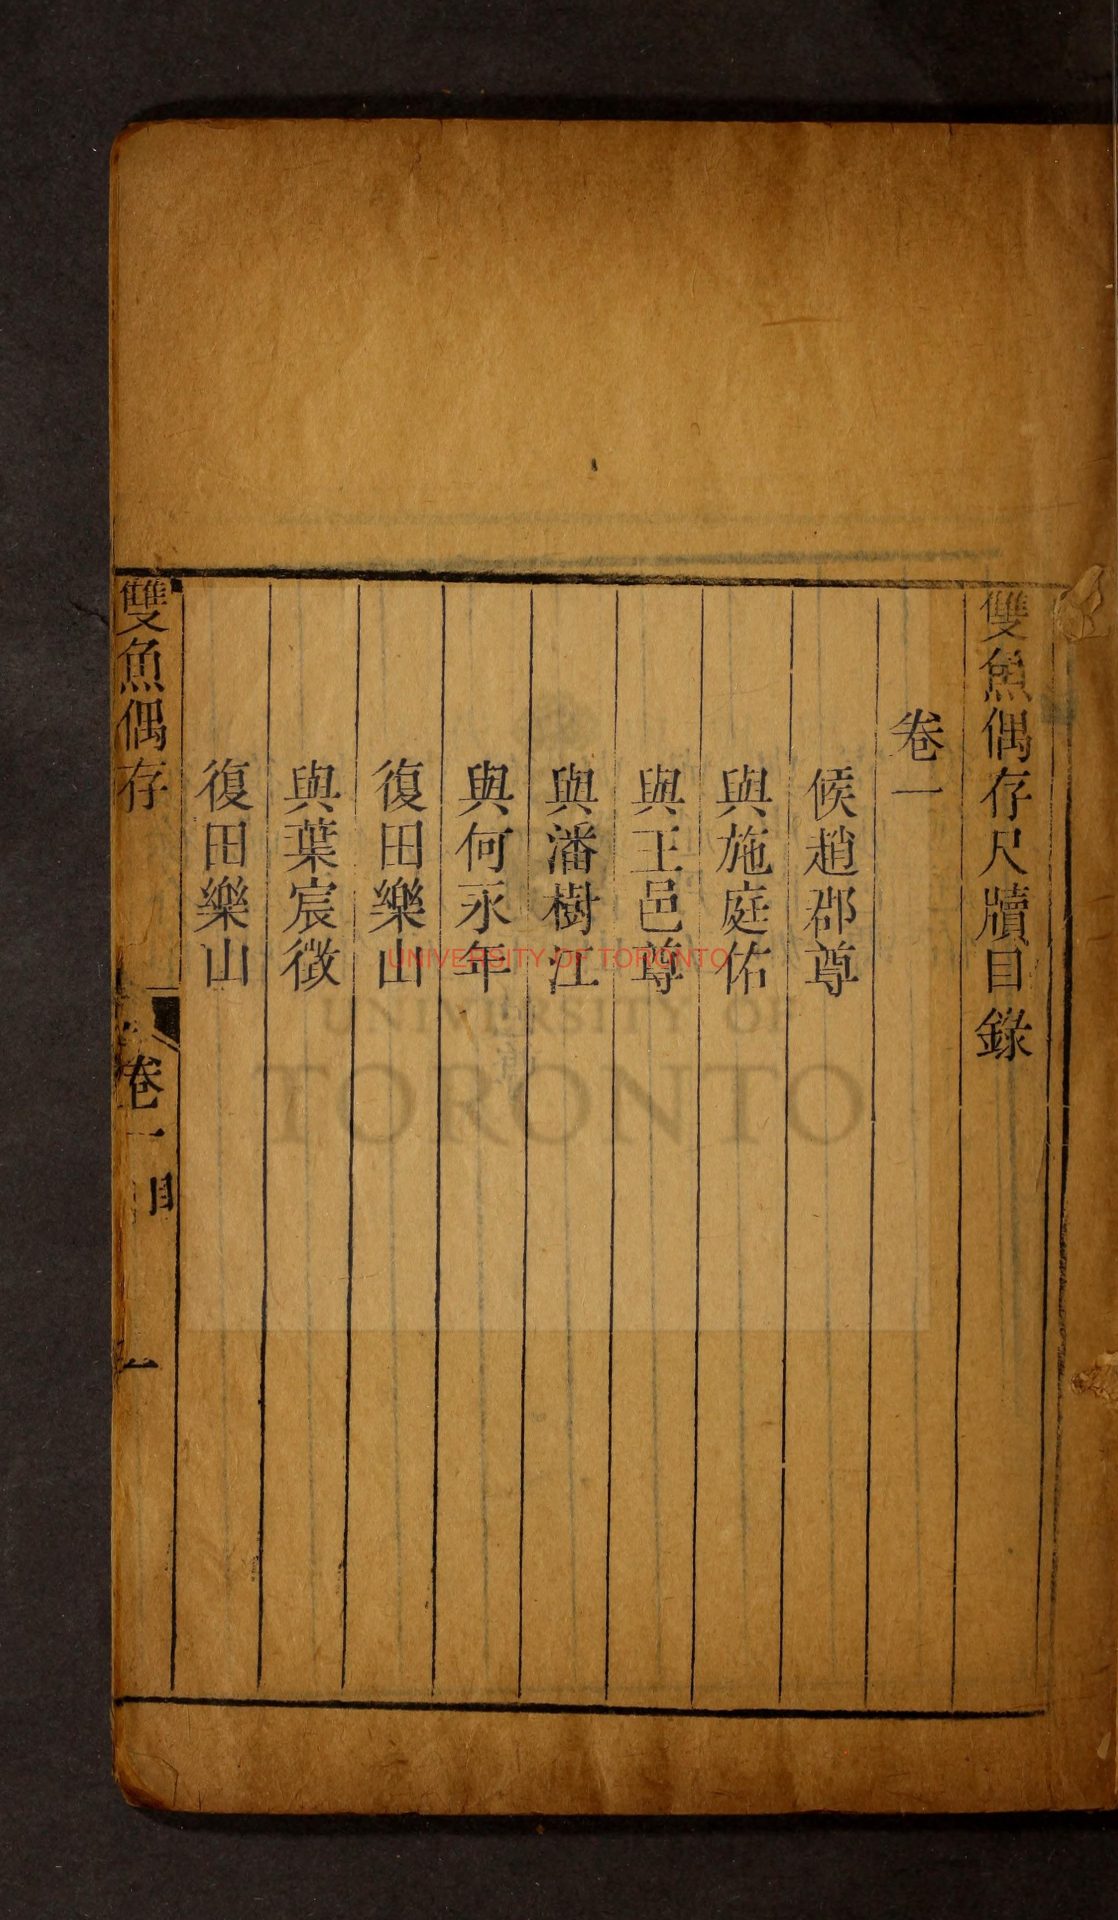 雙魚偶存尺牘目錄
卷一
候趙郡尊
與施庭佑
與王邑尊
與潘樹江
與何永年
復田樂山
與葉宸徵
復田樂山
雙魚偶存
卷一目
一
UNIVERSITY OF TORONTO
UNIVERSITY OF
TORONTO